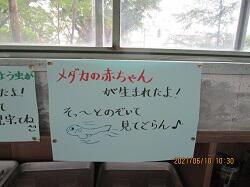 よう虫が
たよ!
て
見てね
メダカの赤ちゃん
が生まれたよ!
そっ〜とのぞいて
見てごらん♪
2021/06/10 10:30